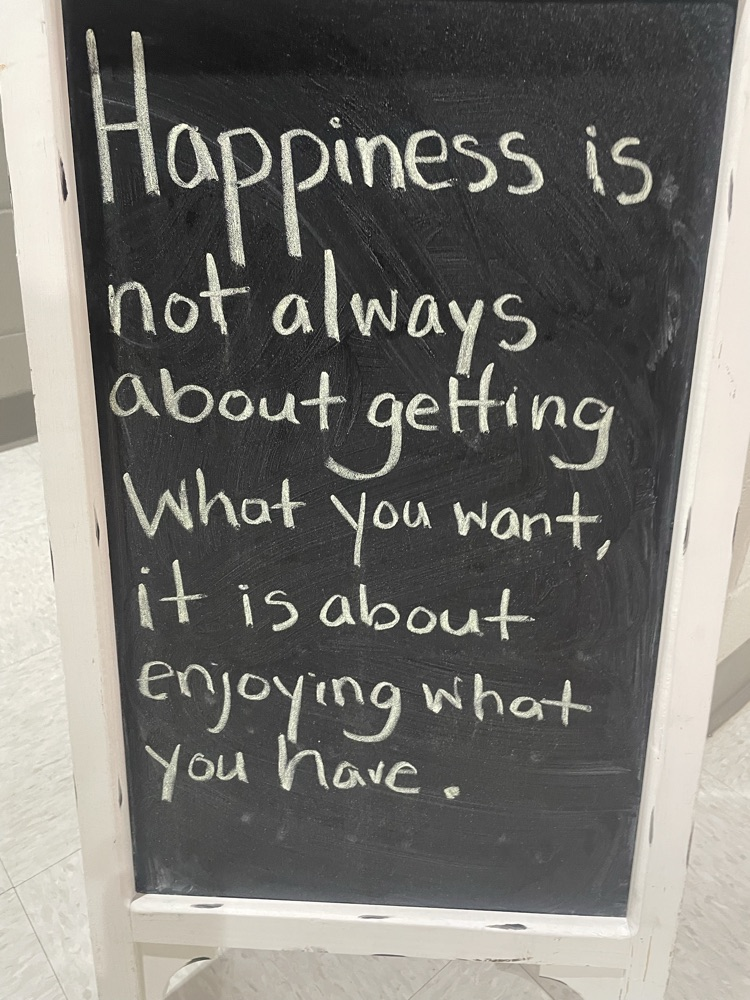 Happiness is
not always
about getting
What you want,
it is about
enjoying what
you have.